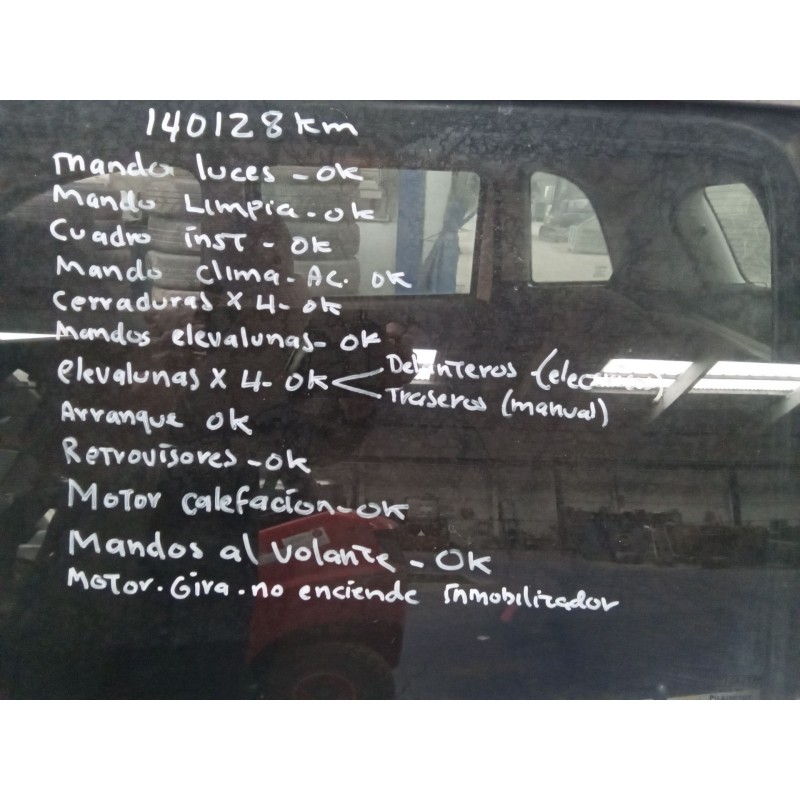 140128 km
Mando luces - OK
Mando Limpia - OK
Cuadro inst - OK
Mando clima - AC. OK
Cerraduras x 4 - OK
Mandos elevalunas - OK
elevalunas x 4 - OK < Delanteros
Traseros (manual)
Arranque OK
Retrovisores - OK
Motor calefacion - OK
Mandos al volante - OK
Motor. Gira. no enciende inmobilizador